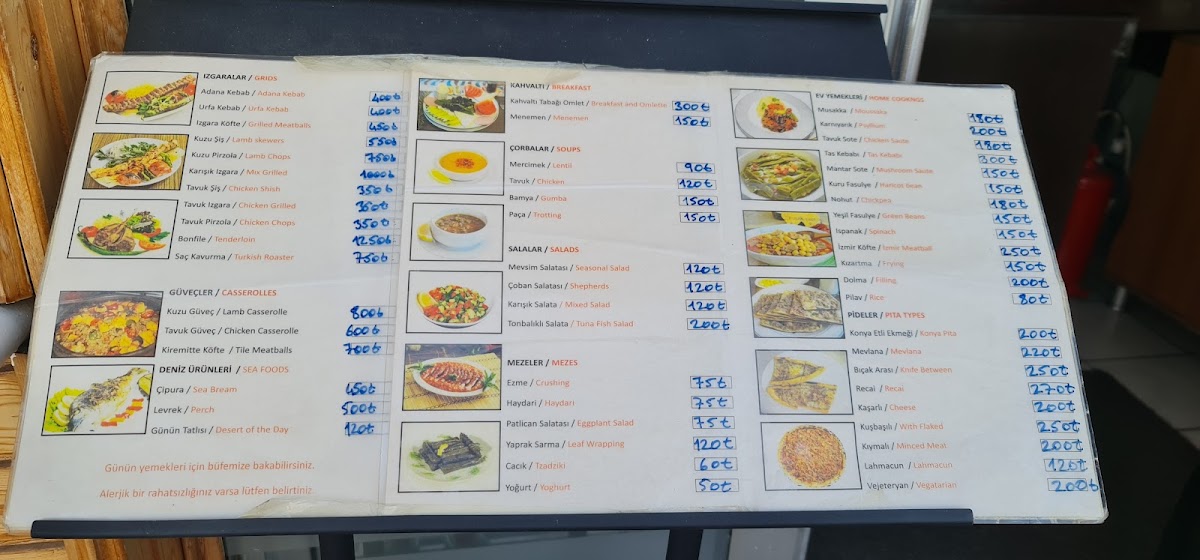 IZGARALAR / GRIDS
Adana Kebab / Adana Kebab 400₺
Urfa Kebab / Urfa Kebab 400₺
Izgara Köfte / Grilled Meatballs 450₺
Kuzu Şiş / Lamb skewers 550₺
Kuzu Pirzola / Lamb Chops 750₺
Karışık Izgara / Mix Grilled 1000₺
Tavuk Şiş / Chicken Shish 350₺
Tavuk Izgara / Chicken Grilled 350₺
Tavuk Pirzola / Chicken Chops 350₺
Bonfile / Tenderloin 1250₺
Saç Kavurma / Turkish Roaster 750₺
GÜVEÇLER / CASSEROLLES
Kuzu Güveç / Lamb Casserolle 800₺
Tavuk Güveç / Chicken Casserolle 600₺
Kiremitte Köfte / Tile Meatballs 700₺
DENİZ ÜRÜNLERİ / SEA FOODS
Çipura / Sea Bream 450₺
Levrek / Perch 500₺
Günün Tatlısı / Desert of the Day 120₺
Günün yemekleri için büfemize bakabilirsiniz.
Alerjik bir rahatsızlığınız varsa lütfen belirtiniz.
KAHVALTI / BREAKFAST
Kahvaltı Tabağı Omlet / Breakfast and Omlette 300₺
Menemen / Menemen 150₺
ÇORBALAR / SOUPS
Mercimek / Lentil 90₺
Tavuk / Chicken 120₺
Bamya / Gumba 150₺
Paça / Trotting 150₺
SALALAR / SALADS
Mevsim Salatası / Seasonal Salad 120₺
Çoban Salatası / Shepherds 120₺
Karışık Salata / Mixed Salad 120₺
Tonbalıklı Salata / Tuna Fish Salad 200₺
MEZELER / MEZES
Ezme / Crushing 75₺
Haydari / Haydari 75₺
Patlican Salatası / Eggplant Salad 75₺
Yaprak Sarma / Leaf Wrapping 120₺
Cacık / Tzadziki 60₺
Yoğurt / Yoghurt 50₺
EV YEMEKLERİ / HOME COOKINGS
Musakka / Moussaka 180₺
Karnıyarık / 200₺
Tavuk Sote / Chicken Saute 180₺
Tas Kebabı / Tas Kebabı 300₺
Mantar Sote / Mushroom Saute 150₺
Kuru Fasulye / Haricot Bean 150₺
Nohut / Chickpea 180₺
Yeşil Fasulye / Green Beans 150₺
Ispanak / Spinach 150₺
İzmir Köfte / İzmir Meatball 250₺
Kızartma / Frying 150₺
Dolma / Filling 200₺
Pilav / Rice 80₺
PİDELER / PITA TYPES
Konya Etli Ekmeği / Konya Pita 200₺
Mevlana / Mevlana 220₺
Bıçak Arası / Knife Between 250₺
Recai / Recai 270₺
Kaşarlı / Cheese 200₺
Kuşbaşılı / With Flaked 250₺
Kıymalı / Minced Meat 200₺
Lahmacun / Lahmacun 120₺
Vejeteryan / Vegatarian 200₺